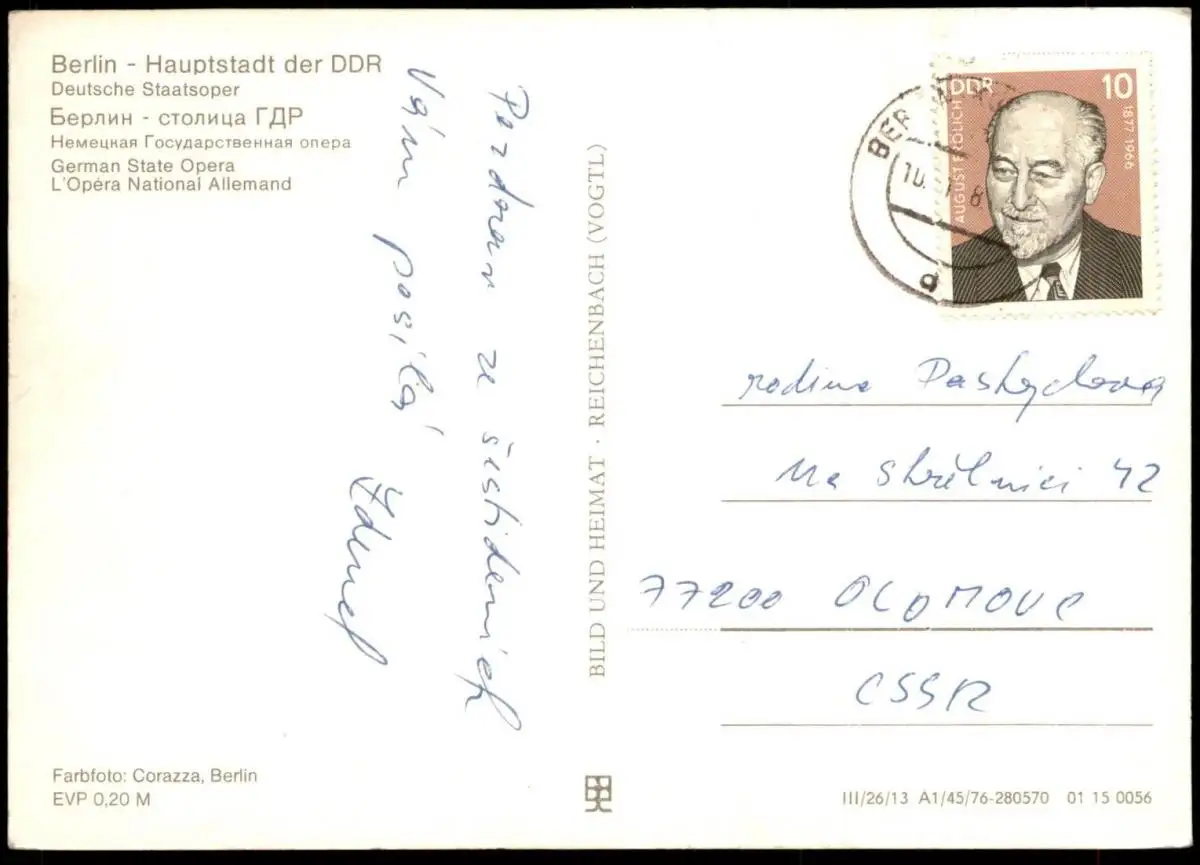 Berlin - Hauptstadt der DDR
Deutsche Staatsoper
Берлин - столица ГДР
Немецкая Государственная опера
German State Opera
L'Opéra National Allemand
Pozdrav ze šestidenních
Vám posílá
Zdeněk
BILD UND HEIMAT · REICHENBACH (VOGTL)
DDR
10
AUGUST FRÖLICH
1877-1966
BER
10.
8
a
rodina
Na Střelnici 42
77200 OLOMOUC
CSSR
Farbfoto: Corazza, Berlin
EVP 0,20 M
III/26/13 A1/45/76-280570 01 15 0056